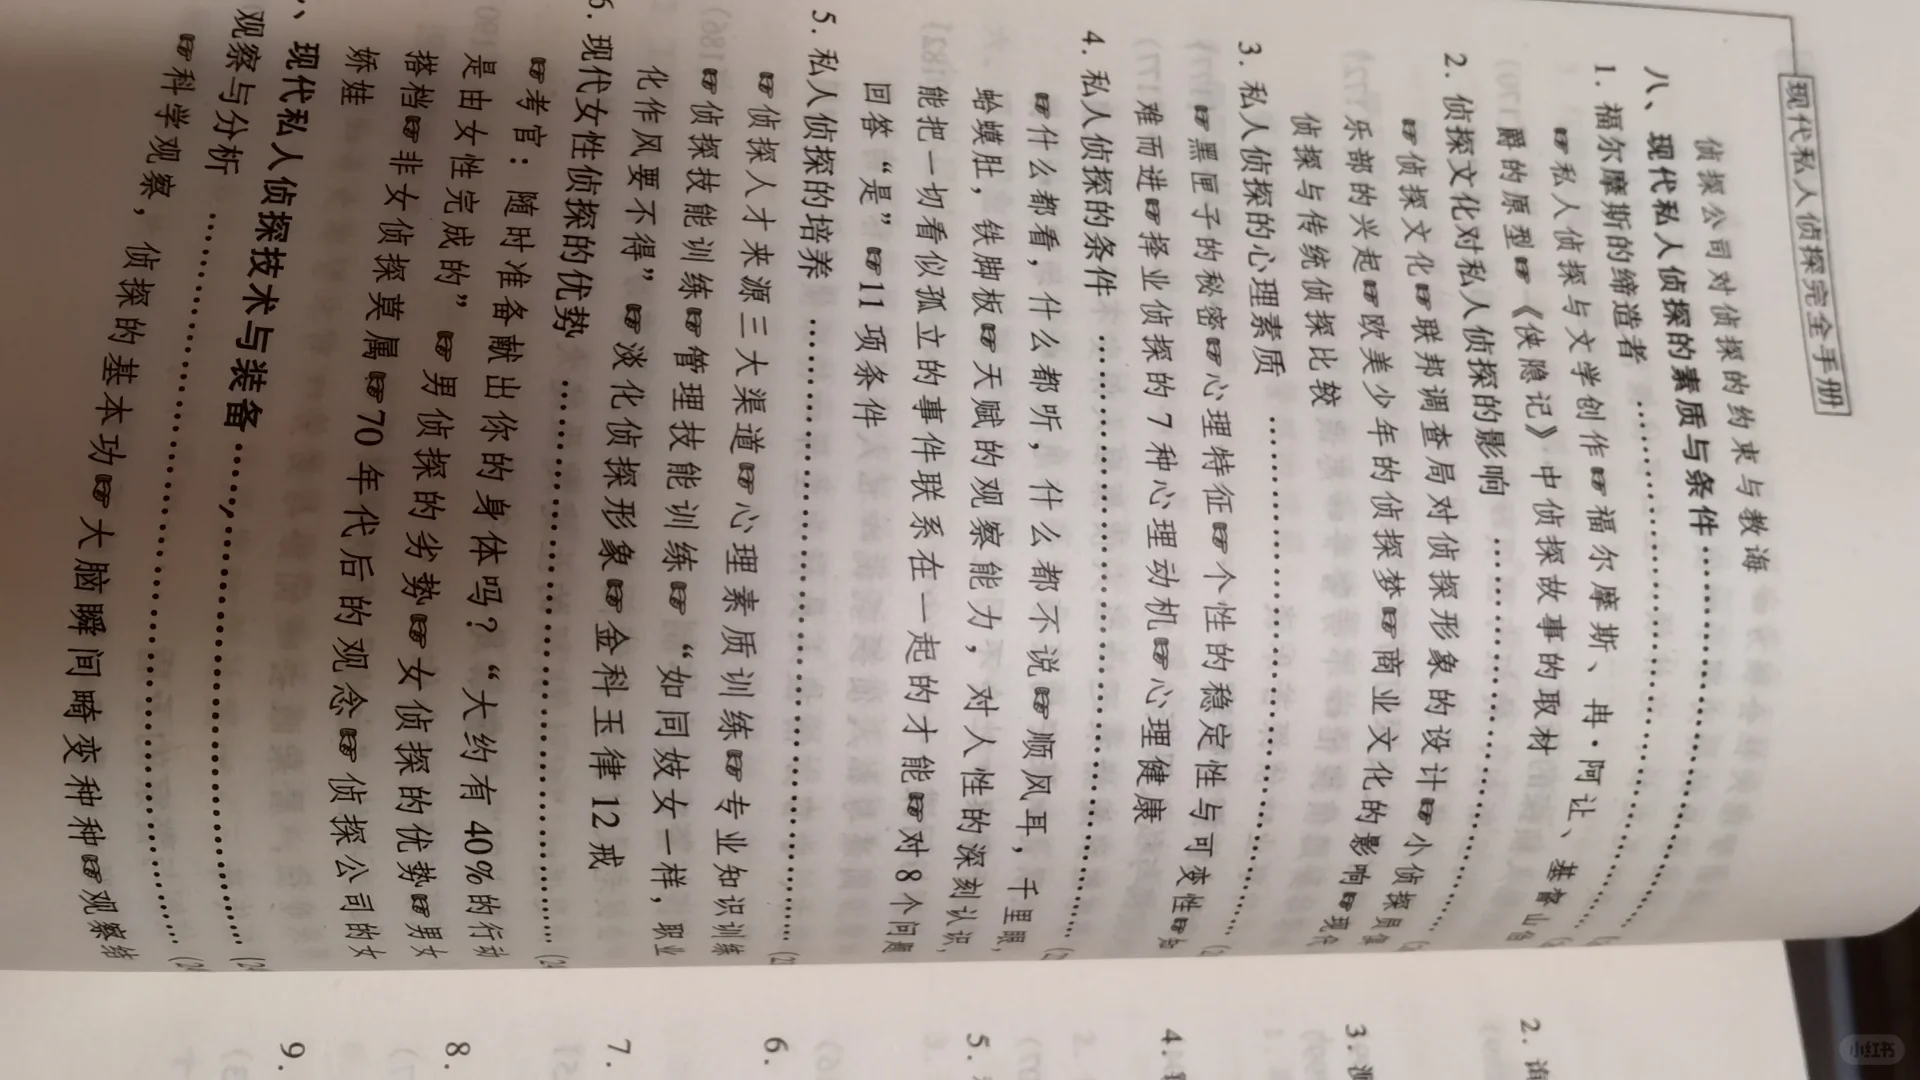 现代私人侦探完全手册
侦探公司对侦探的约束与教诲
八、现代私人侦探的素质与条件
1. 福尔摩斯的缔造者
☞私人侦探与文学创作☞福尔摩斯、冉·阿让、基督山伯
爵的原型☞《侠隐记》中侦探故事的取材
2. 侦探文化对私人侦探的影响
☞侦探文化☞联邦调查局对侦探形象的设计☞小侦探员俱
乐部的兴起☞欧美少年的侦探梦☞商业文化的影响☞现代
侦探与传统侦探比较
3. 私人侦探的心理素质
☞黑匣子的秘密☞心理特征☞个性的稳定性与可变性☞知
难而进☞择业侦探的7种心理动机☞心理健康
4. 私人侦探的条件
☞什么都看,什么都听,什么都不说☞顺风耳,千里眼,
蛤蟆肚,铁脚板☞天赋的观察能力,对人性的深刻认识,
能把一切看似孤立的事件联系在一起的才能☞对8个问题
回答“是”☞11项条件
5. 私人侦探的培养
☞侦探人才来源三大渠道☞心理素质训练☞专业知识训练
☞侦探技能训练☞管理技能训练☞“如同妓女一样,职业
化作风要不得”☞淡化侦探形象☞金科玉律12戒
6. 现代女性侦探的优势
☞考官:随时准备献出你的身体吗?“大约有40%的行动
是由女性完成的”☞男侦探的劣势☞女侦探的优势☞男女
搭档☞非女侦探莫属☞70年代后的观念☞侦探公司的女
娇娃
、现代私人侦探技术与装备
观察与分析
☞科学观察,侦探的基本功☞大脑瞬间畸变种种☞观察结
2.
3.
4.
5.
6.
7.
8.
9.
小红书